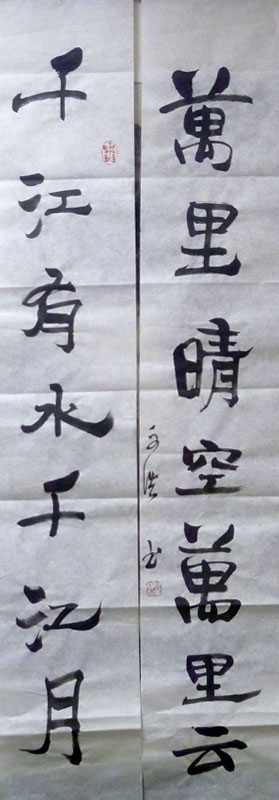 千江有水千江月
萬里晴空萬里云
浩书